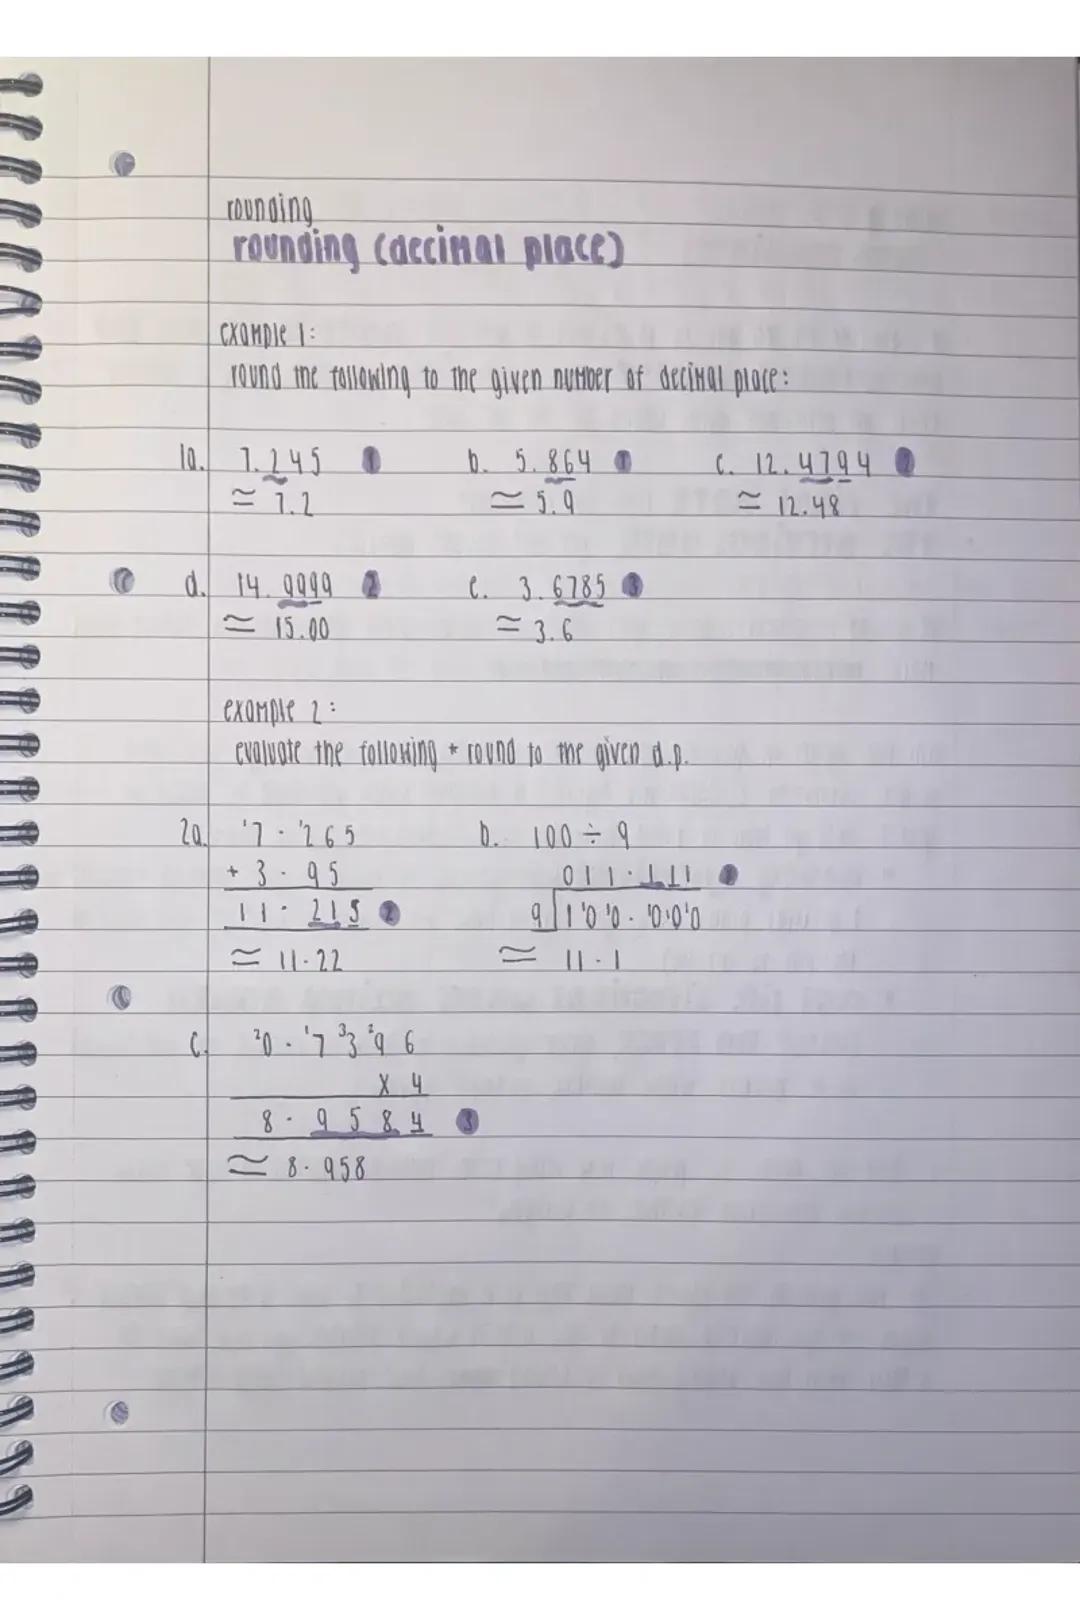 rounding
rounding (decimal place)
example 1:
round the following to the given number of decimal place:
1a. 7.245 1 b. 5.864 1 c. 12.4794 2
≈ 7.2 ≈ 5.9 ≈ 12.48
d. 14.9999 2 e. 3.6785 3
≈ 15.00 ≈ 3.6
example 2:
evaluate the following + round to the given d.p.
2a. '7.'265 b. 100 ÷ 9
+ 3.95 011.111
11.215 2 9 1'0'0.'0'0'0
≈ 11.22 ≈ 11.1
c. ²0.'7³3²96
x 4
8.9584 3
≈ 8.958